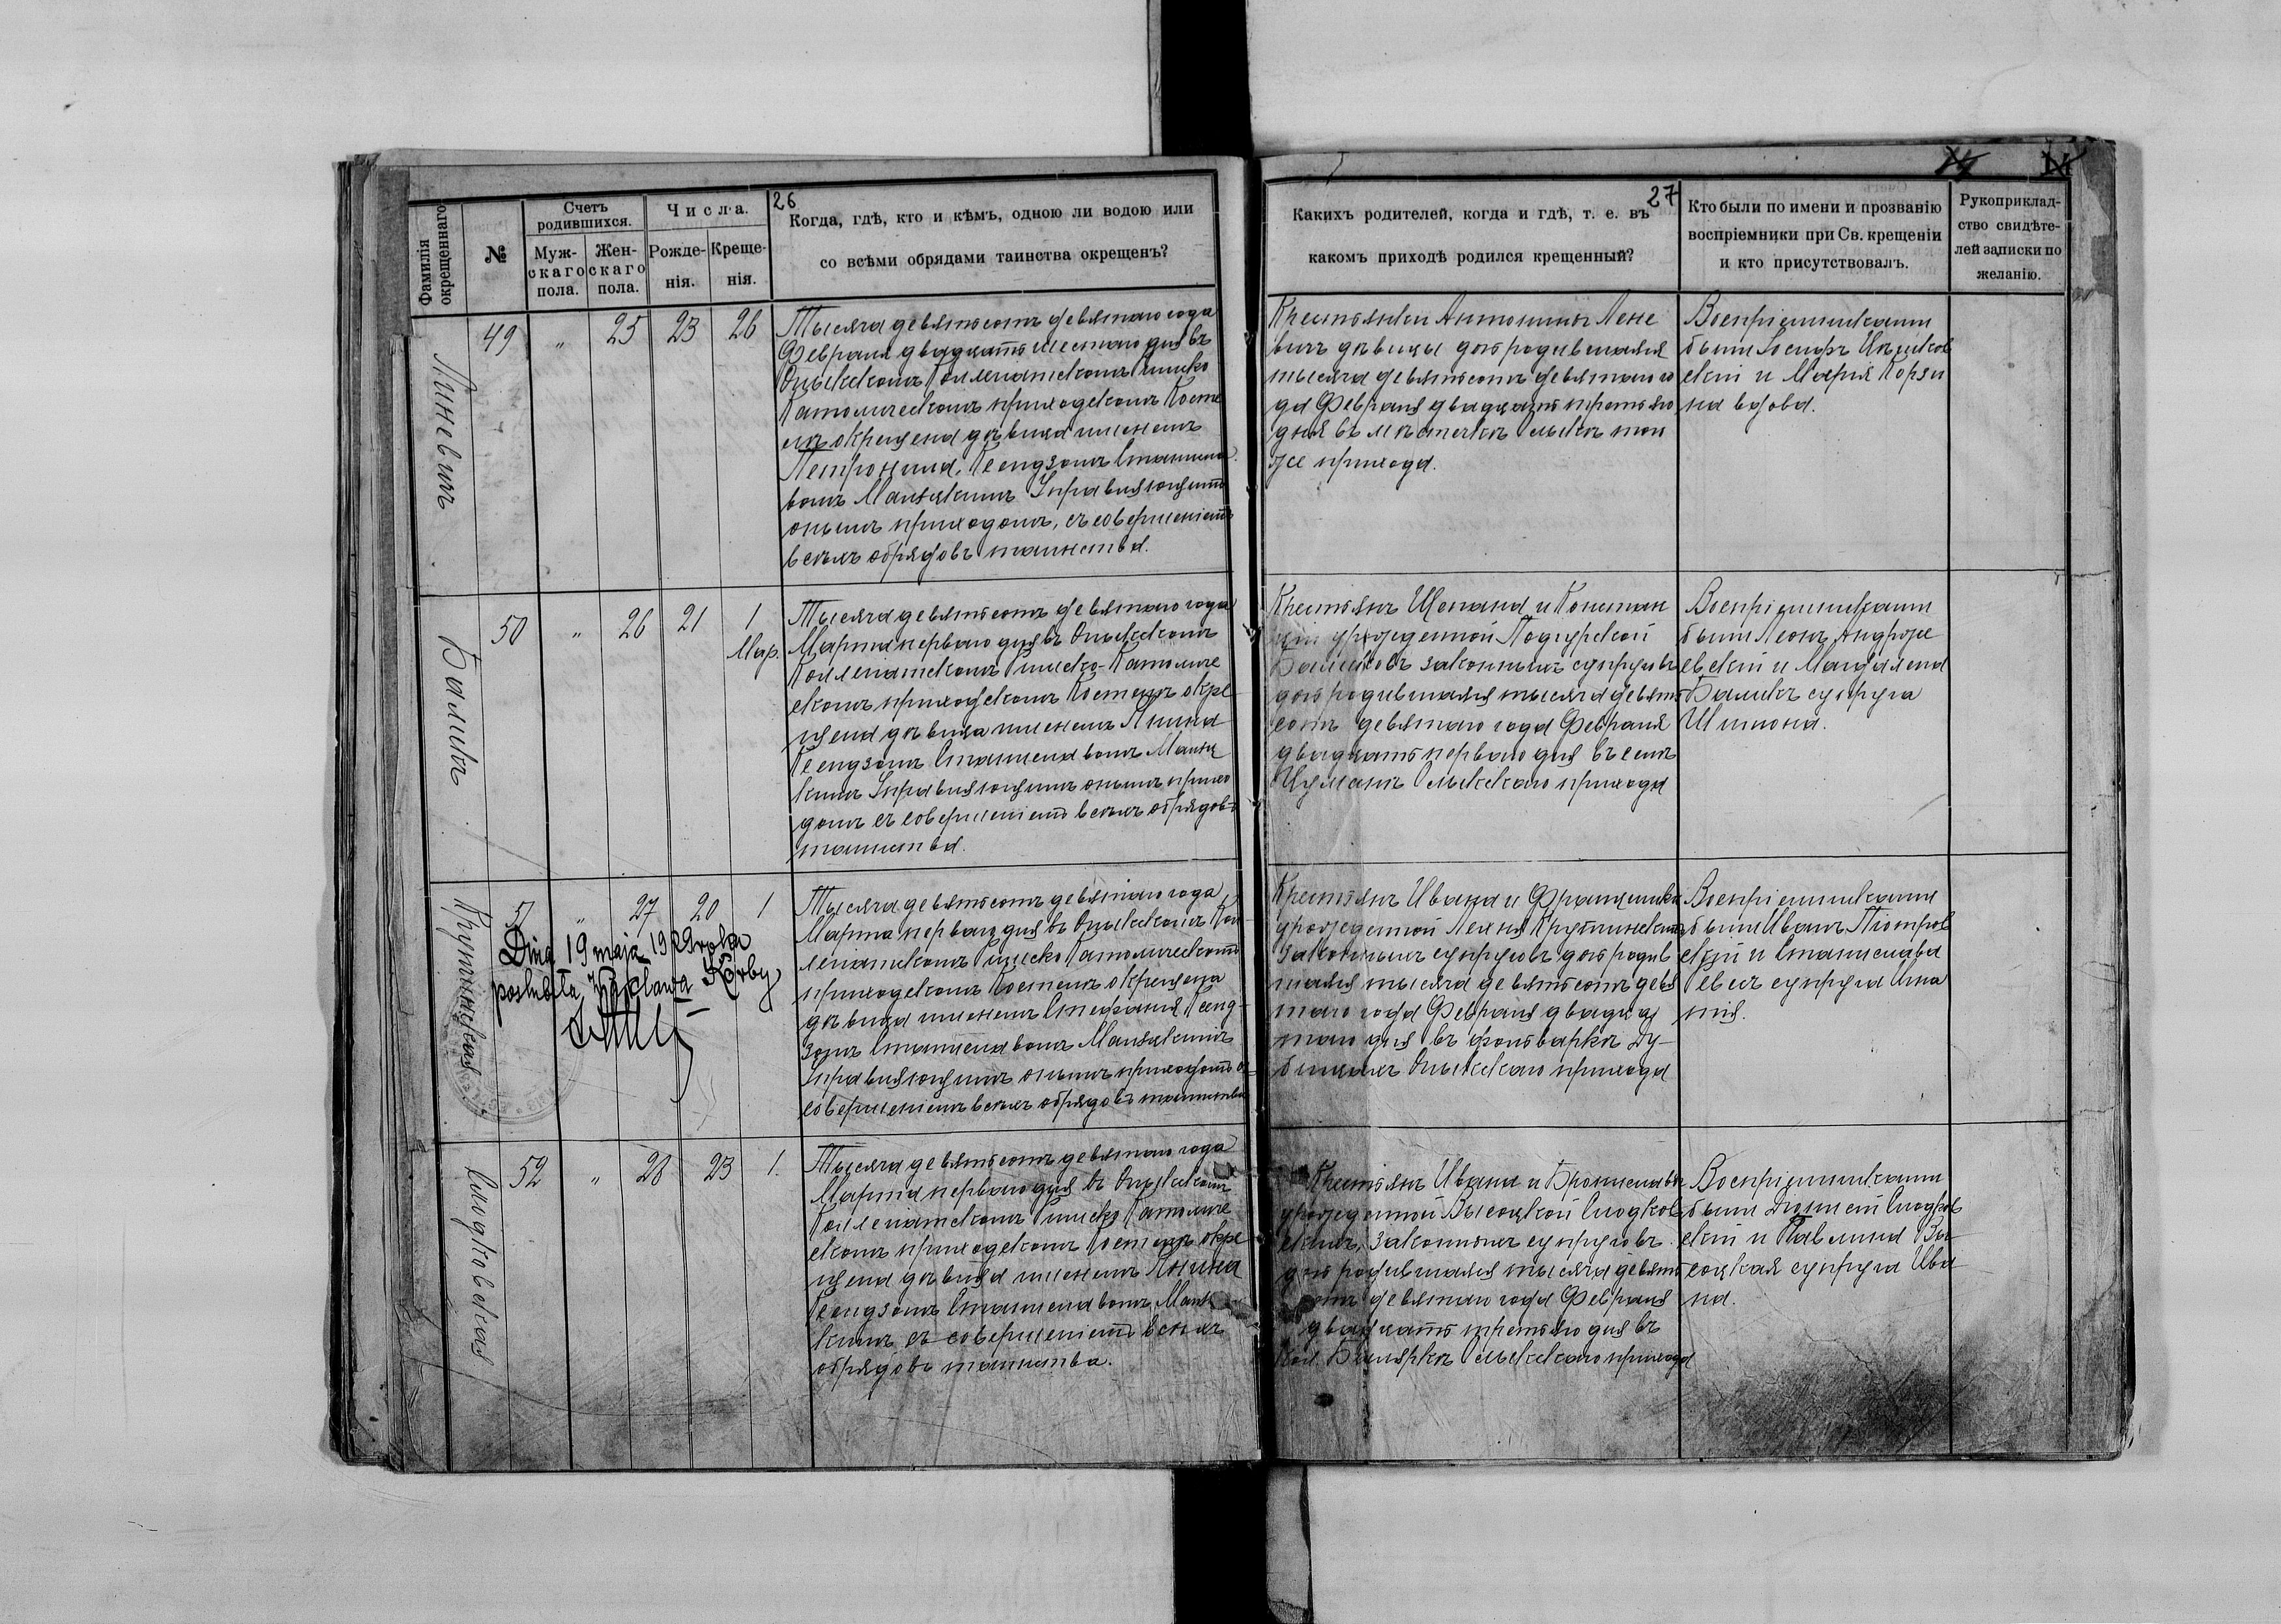 26
27
Фамилія окрещеннаго
№
Счетъ родившихся.
Муж-скаго пола.
Жен-скаго пола.
Числа.
Рожде-нія.
Креще-нія.
Когда, гдѣ, кто и кѣмъ, одною ли водою или
со всѣми обрядами таинства окрещенъ?
Какихъ родителей, когда и гдѣ, т. е. въ
какомъ приходѣ родился крещенный?
Кто были по имени и прозванію
воспріемники при Св. крещеніи
и кто присутствовалъ.
Рукоприклад-
ство свидѣте-
лей записки по
желанію.
Линевичъ
49 " 25 23 26
Тысяча девятьсотъ девятаго года
Февраля двадцать шестаго дня въ
Олыкскомъ Коллегіатскомъ Римско
Католическомъ приходскомъ Косте
лѣ окрещена дѣвица именемъ
Петронина, Ксендзомъ Станисла
вомъ Управляющимъ
онымъ приходомъ, съ совершеніемъ
всѣхъ обрядовъ таинства.
Крестьянки Антонины Лене
вичъ дѣвицы дочь родившаяся
тысяча девятьсотъ девятаго го
да Февраля двадцать третьяго
дня въ мѣстечкѣ Олыкѣ той
же прихода.
Воспріемниками
были Іосифъ
скій и Марія Корзу
на вдова.
Баликъ
50 " 26 21 1
Мар.
Тысяча девятьсотъ девятаго года
Марта перваго дня въ Олыкскомъ
Коллегіатскомъ Римско-Католиче
скомъ приходскомъ Костелѣ окре
щена дѣвица именемъ Янина
Ксендзомъ Станиславомъ
кимъ Управляющимъ онымъ прихо
домъ съ совершеніемъ всѣхъ обрядовъ
таинства.
Крестьянъ Щепана и Констан
ціи урожденной Подгурской
Баликовъ законныхъ супруговъ
дочь родившаяся тысяча девять
сотъ девятаго года Февраля
двадцать перваго дня въ селѣ
Цуманѣ Олыкскаго прихода
Воспріемниками
были Леонъ Андрже
евскій и Магдалена
Баликъ супруга
Шимона.
Крупинская
51 " 27 20 1
Dnia 19 maja 1929 roku
poślubiła Wacława Korby
Тысяча девятьсотъ девятаго года
Марта перваго дня въ Олыкскомъ Кол
легіатскомъ Римско Католическомъ
приходскомъ Костелѣ окрещена
дѣвица именемъ Стефанія, Ксенд-
зомъ Станиславомъ
Управляющимъ онымъ приходомъ съ
совершеніемъ всѣхъ обрядовъ таинства
Крестьянъ Ивана и Францишки
урожденной
законныхъ супруговъ дочь родив
шаяся тысяча девятьсотъ девя
таго года Февраля двадца
таго дня въ фольваркѣ Ду-
бищахъ Олыкскаго прихода
Воспріемниками
были Иванъ Піотров
скій и Станислава
супруга Игна
тія.
Слодковская
52 " 28 23 1.
Тысяча девятьсотъ девятаго года
Марта перваго дня въ Олыкскомъ
Коллегіатскомъ Римско Католиче
скомъ приходскомъ Костелѣ окре
щена дѣвица именемъ Янина
Ксендзомъ Станиславомъ
кимъ съ совершеніемъ всѣхъ
обрядовъ таинства.
Крестьянъ Ивана и Брониславы
урожденной Высоцкой Слодков
скихъ, законныхъ супруговъ
дочь родившаяся тысяча девять
сотъ девятаго года Февраля
двадцать третьяго дня въ
кол. Олыкскаго прихода
Воспріемниками
были Слодков
скій и Павлина Вы-
соцкая супруга Ива
на.